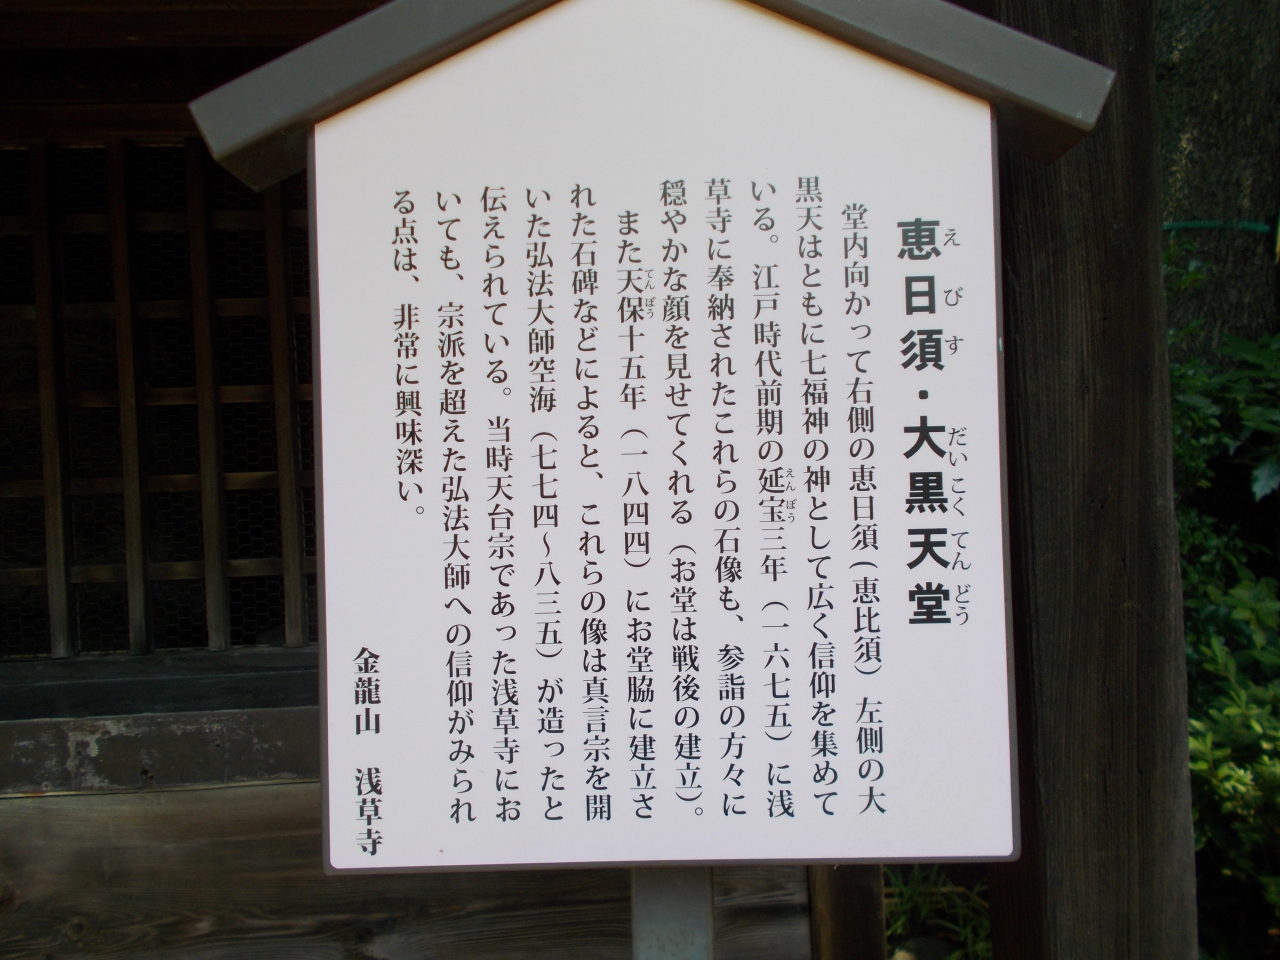 恵日須・大黒天堂
えびす だいこくてんどう
堂内向かって右側の恵日須（恵比須）左側の大
黒天はともに七福神の神として広く信仰を集めて
いる。江戸時代前期の延宝三年（一六七五）に浅
えんぽう
草寺に奉納されたこれらの石像も、参詣の方々に
穏やかな顔を見せてくれる（お堂は戦後の建立）。
また天保十五年（一八四四）にお堂脇に建立さ
てんぽう
れた石碑などによると、これらの像は真言宗を開
いた弘法大師空海（七七四〜八三五）が造ったと
伝えられている。当時天台宗であった浅草寺にお
いても、宗派を超えた弘法大師への信仰がみられ
る点は、非常に興味深い。
金龍山　浅草寺